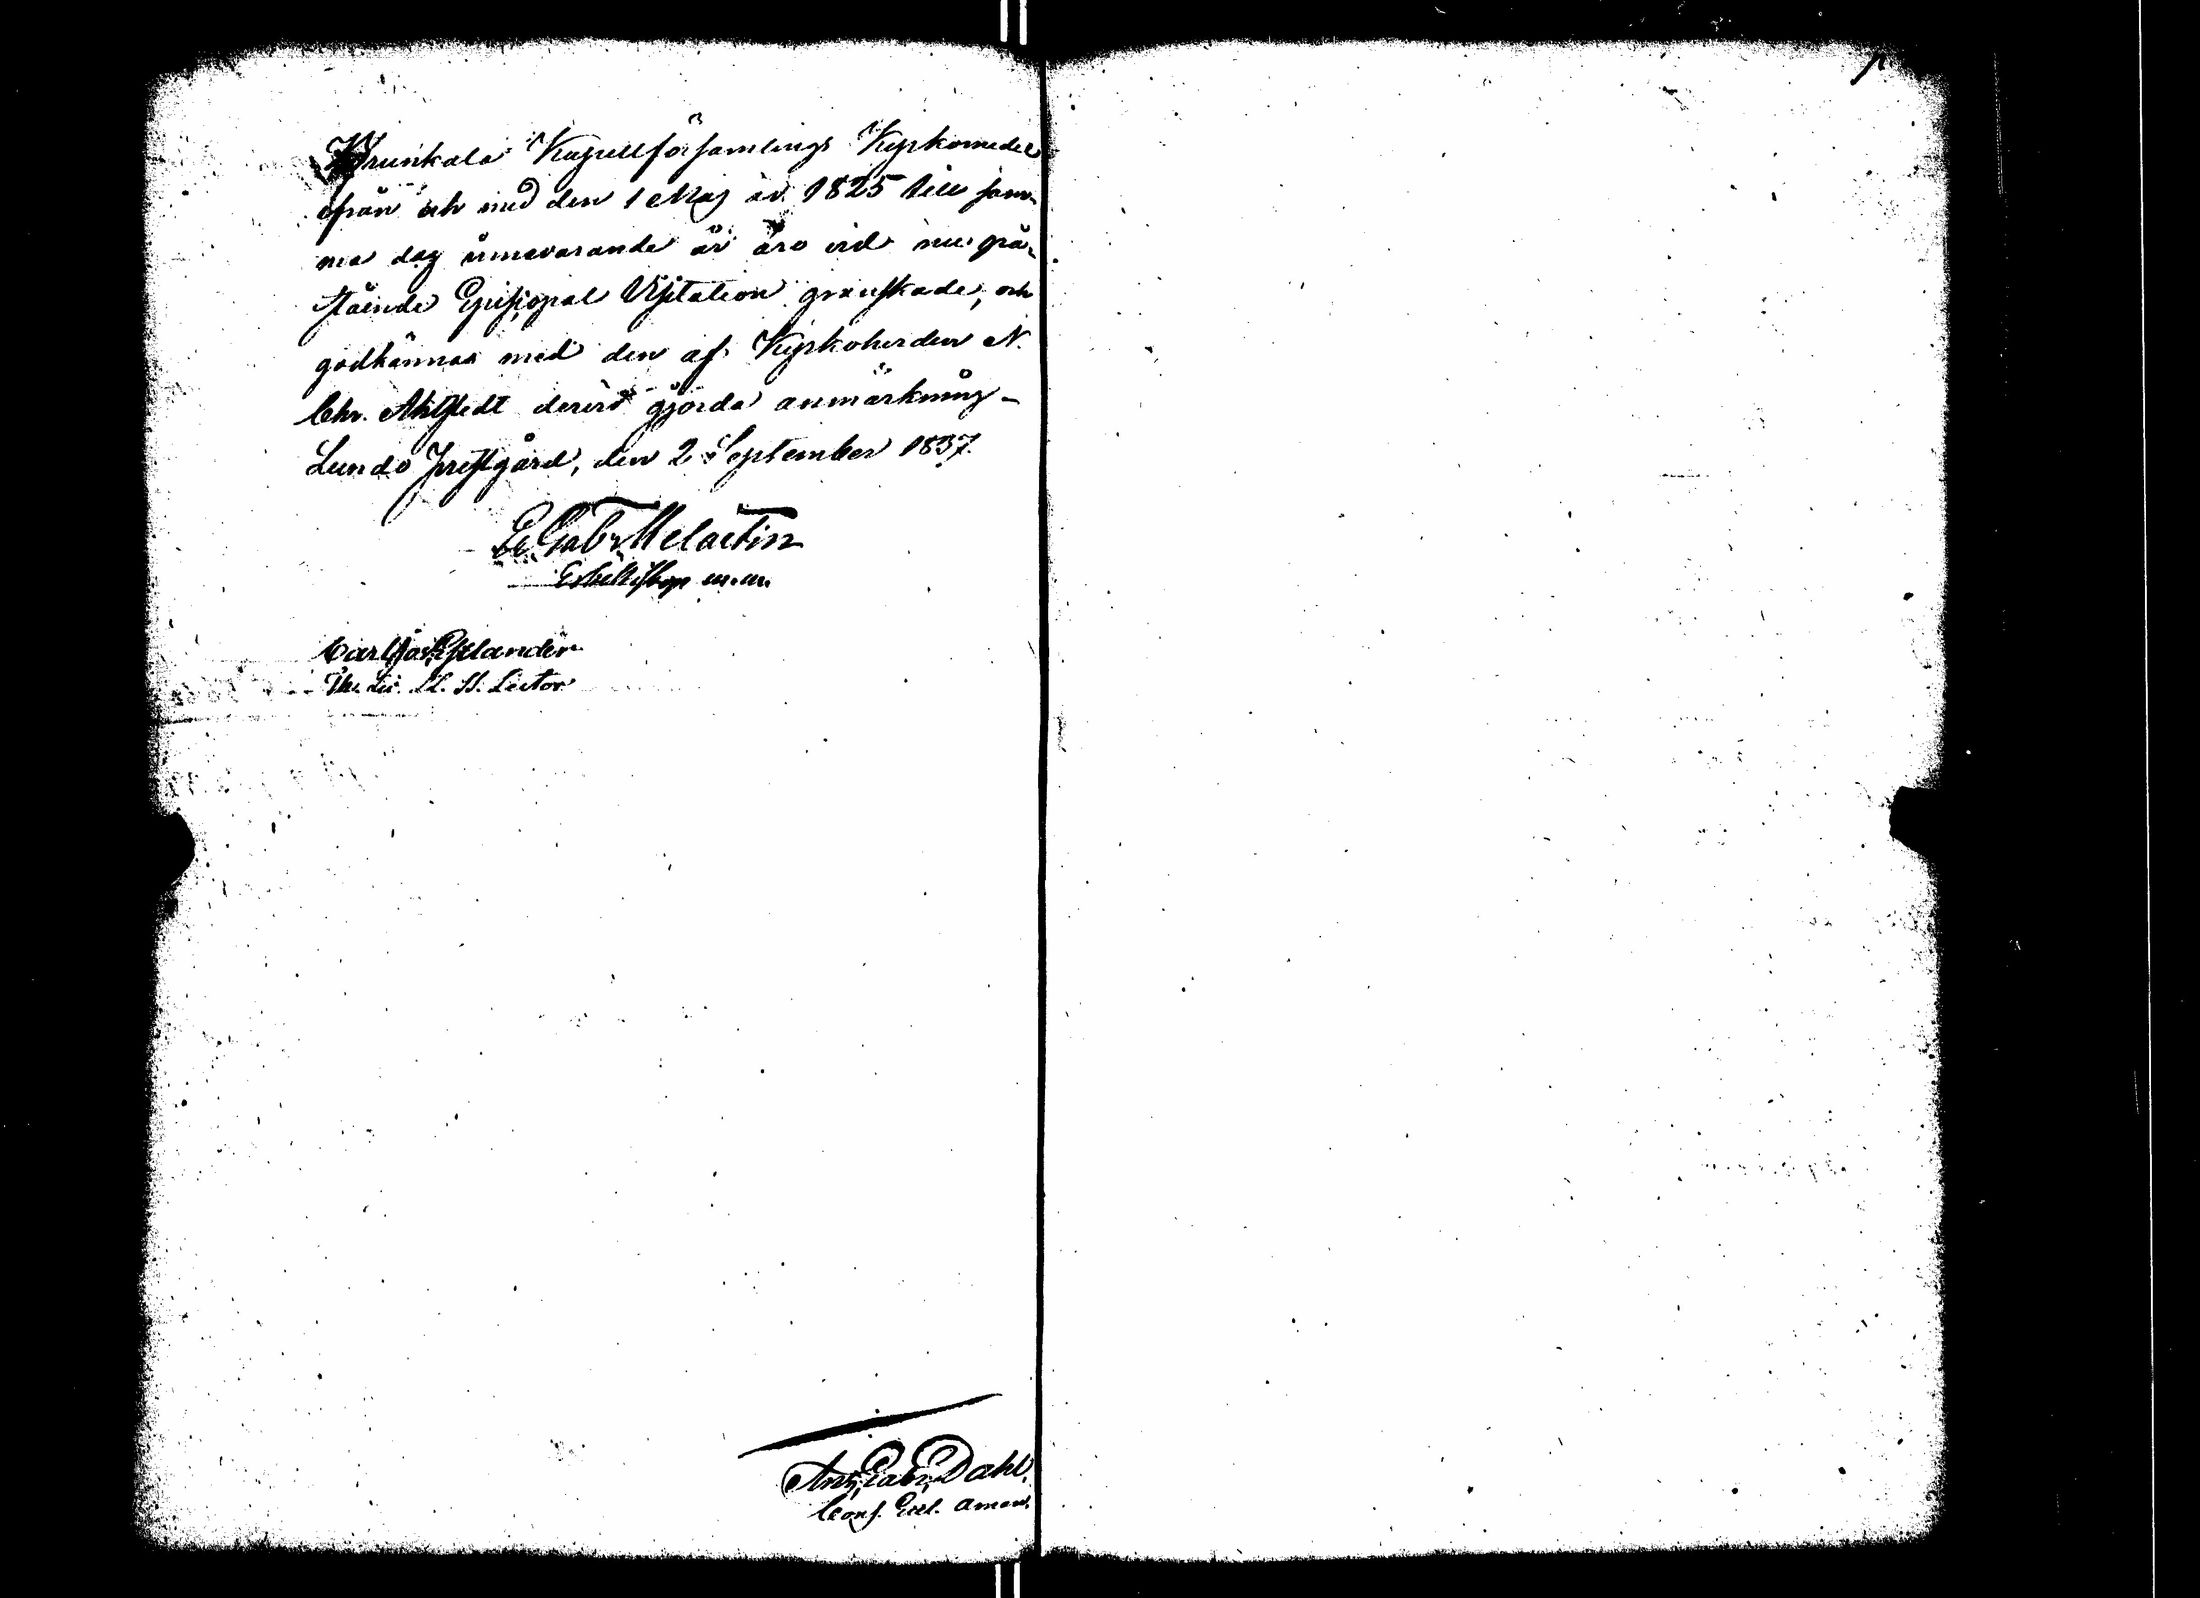 Prunkala Kapellförsamlings Kyrkomedel
ifrån och med den 1 Maj år 1825 till sam-
ma dag innevarande år äro vid nu på-
stående Episcopal Visitation granskade, och
godkännas med den af Kyrkoherden N.
Chr. Ahlstedt dervid gjorda anmärkning –
Lundo Prestgård, den 2 September 1837.
E. Gabr. Melartin
Erkebiskop m.m.
Carl
Th. Lic. LL. SS. Lector
And. Gabr. Dahl.
Cons. Eccl. Aman.